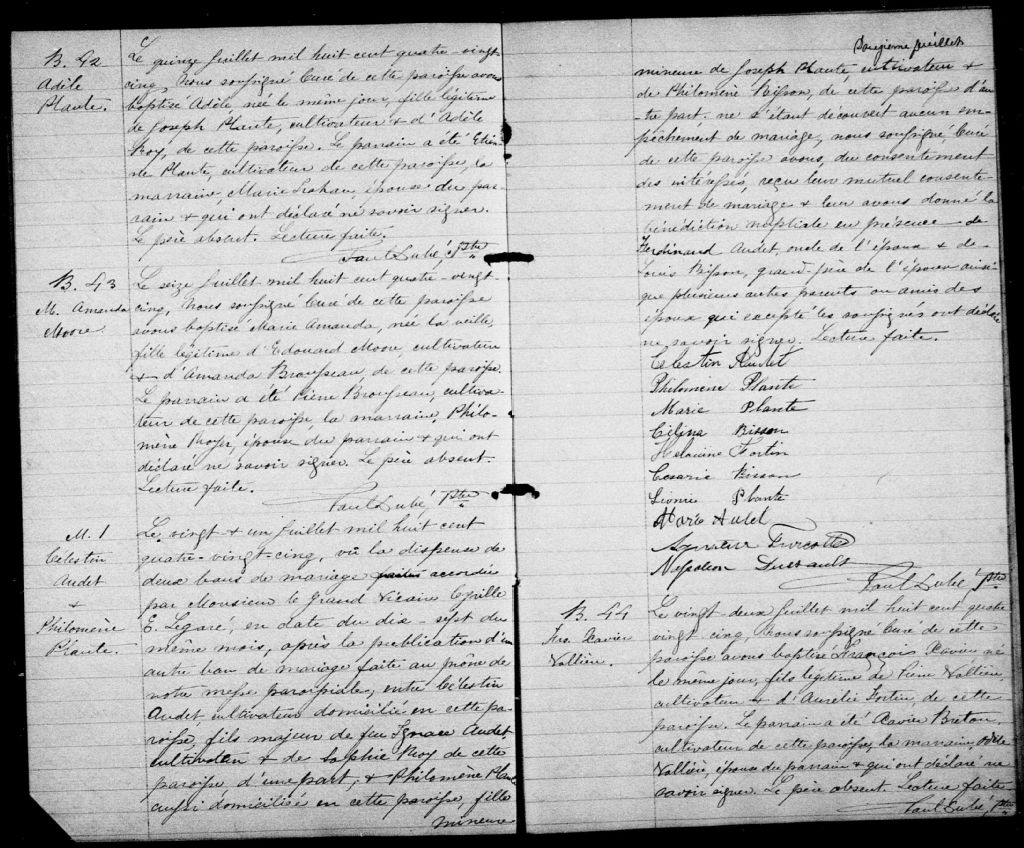 B. 42
Adèle
Plante.
Le quinze Juillet mil huit cent quatre-vingt
cinq, Nous soussigné Curé de cette paroisse avons
baptisé Adèle, née le même jour, fille légitime
de Joseph Plante, cultivateur & d'Adèle
Roy, de cette paroisse. Le parrain a été Etien-
ne Plante, cultivateur de cette paroisse, la
marraine, Marie épouse du par-
rain & qui ont déclaré ne savoir signer.
Le père absent. Lecture faite.
Paul Dubé, Ptre
B. 43
M. Amanda
Moore
Le seize Juillet mil huit cent quatre-vingt-
cinq, Nous soussigné Curé de cette paroisse
avons baptisé Marie Amanda, née la veille,
fille légitime d'Edouard Moore, cultivateur
& d'Amanda Brousseau de cette paroisse.
Le parrain a été Pierre Brousseau, cultiva-
teur de cette paroisse, la marraine, Philo-
mène Royer, épouse du parrain & qui ont
déclaré ne savoir signer. Le père absent.
Lecture faite.
Paul Dubé, Ptre
M. 1
Célestin
Audet
&
Philomène
Plante.
Le vingt & un Juillet mil huit cent
quatre-vingt-cinq, vu la dispense de
deux bans de mariage accordée
par Monsieur le Grand Vicaire Cyrille
E. Légaré, en date du dix-sept du
même mois, après la publication d'un
autre ban de mariage faite au prône de
notre messe paroissiale, entre Célestin
Audet, cultivateur domicilié en cette pa-
roisse, fils majeur de feu Ignace Audet
cultivateur & de Sophie Roy de cette
paroisse, d'une part, & Philomène Plante
aussi domiciliée en cette paroisse, fille
mineure
Douzième feuillet
mineure de Joseph Plante, cultivateur &
de Philomène Bisson, de cette paroisse d'au-
tre part. ne s'étant découvert aucun em-
pêchement de mariage, nous soussigné, Curé
de cette paroisse avons, du consentement
des intéressés, reçu leur mutuel consente-
ment de mariage & leur avons donné la
bénédiction nuptiale en présence de
Ferdinand Audet, oncle de l'époux & de
Louis Bisson, grand-père de l'épouse ainsi
que plusieurs autres parents ou amis des
époux qui excepté les soussignés ont déclaré
ne savoir signer. Lecture faite.
Celestin Audet
Philomene Plante
Marie Plante
Célina Bisson
Helouine Fortin
Cesarie Bisson
Plante
Marie Audet
Turcotte
Nepoleon Dussault
Paul Dubé, Ptre
B. 44
Frs. Xavier
Vallière.
Le vingt-deux Juillet mil huit cent quatre
vingt-cinq, Nous soussigné Curé de cette
paroisse avons baptisé François Xavier né
le même jour, fils légitime de Vallière,
cultivateur & d'Aurélie Fortin, de cette
paroisse. Le parrain a été Xavier Breton,
cultivateur de cette paroisse, la marraine, Odile
Vallière, épouse du parrain & qui ont déclaré ne
savoir signer. Le père absent. Lecture faite
Paul Dubé, Ptre